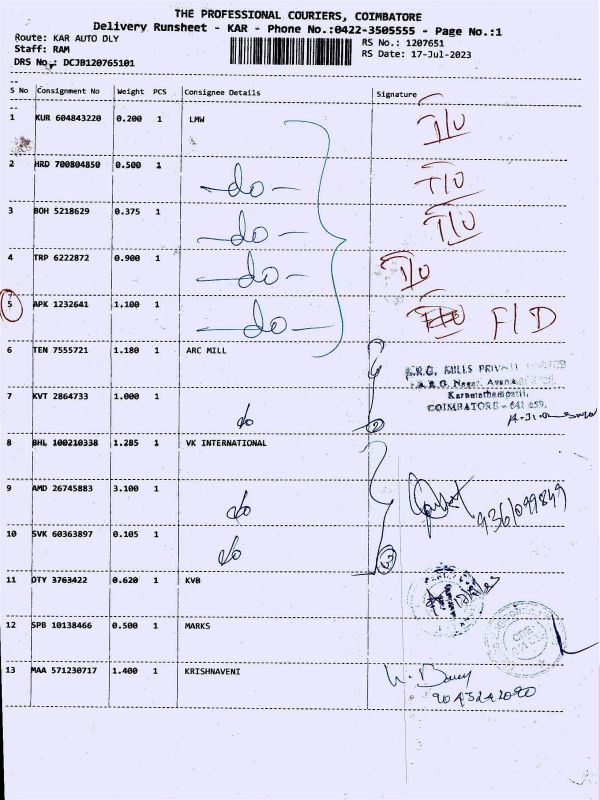 THE PROFESSIONAL COURIERS, COIMBATORE
Delivery Runsheet - KAR - Phone No.:0422-3505555 - Page No.:1
Route: KAR AUTO DLY
RS No.: 1207651
Staff: RAM
RS Date: 17-Jul-2023
DRS No.: DCJB120765101
S No Consignment No Weight PCS Consignee Details Signature
1 KUR 604843220 0.200 1 LMW I/U
2 HRD 700804850 0.500 1 -do- I/U
3 BOH 5218629 0.375 1 -do- I/U
4 TRP 6222872 0.900 1 -do- I/U
5 APK 1232641 1.100 1 -do- F/D
6 TEN 7555721 1.180 1 ARC MILL
MILLS PRIVATE
7 KVT 2864733 1.000 1 do
COIMBATORE - 641 659.
8 BHL 100210338 1.285 1 VK INTERNATIONAL
9 AMD 26745883 3.100 1 do
10 SVK 60363897 0.105 1 do
11 OTY 3763422 0.620 1 KVB
12 SPB 10138466 0.500 1 MARKS
13 MAA 571230717 1.400 1 KRISHNAVENI